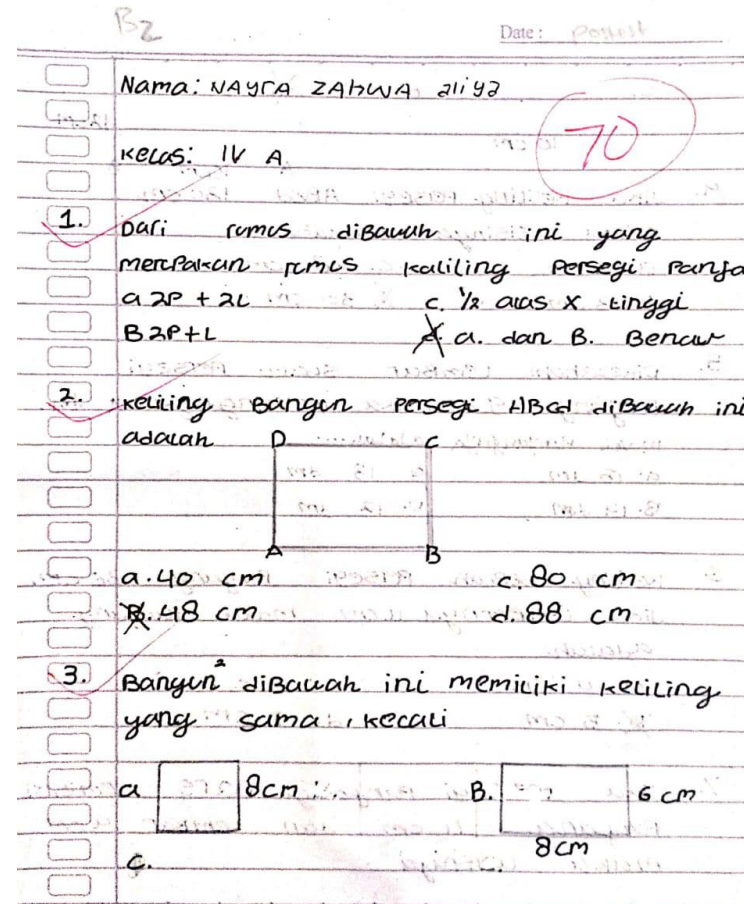 B2
Date: Postest
Nama: NAYRA ZAHWA aliya
70
Kelas: IV A
1. Dari rumus diBawah ini yang
merupakan rumus kaliling Persegi Panja
a 2P + 2L c. ½ alas x tinggi
B 2P+L d. a. dan B. Benar
2. Keliling Bangun Persegi ABCd diBawah ini
adalah
D C
A B
a. 40 cm c. 80 cm
B. 48 cm d. 88 cm
3. Bangun² diBawah ini memiliki Keliling
yang sama, kecali
a 8cm B. 6 cm
8cm
c.